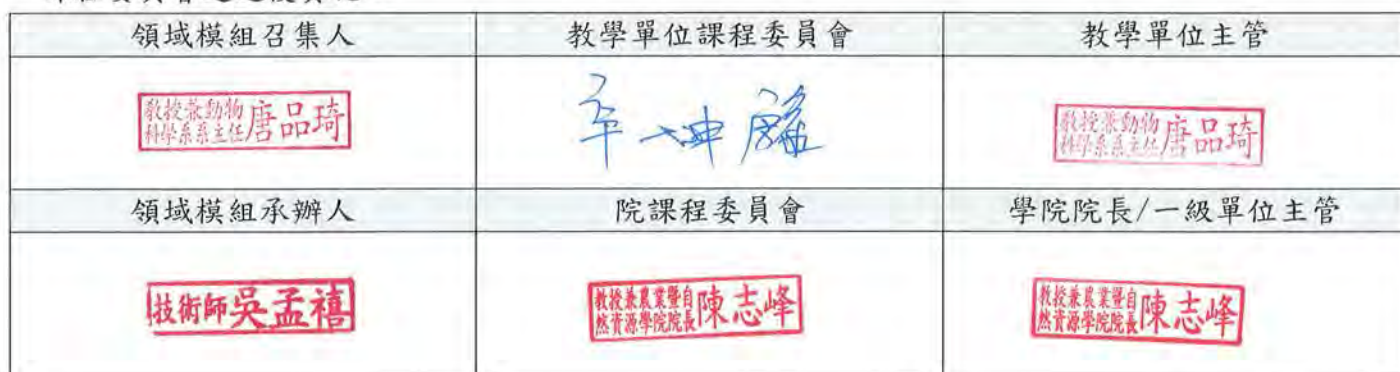 領域模組召集人 教學單位課程委員會 教學單位主管
教授兼動物
科學系系主任 唐品琦
教授兼動物
科學系系主任 唐品琦
領域模組承辦人 院課程委員會 學院院長/一級單位主管
技術師 吳孟禧
教授兼農業暨自
然資源學院院長 陳志峰
教授兼農業暨自
然資源學院院長 陳志峰